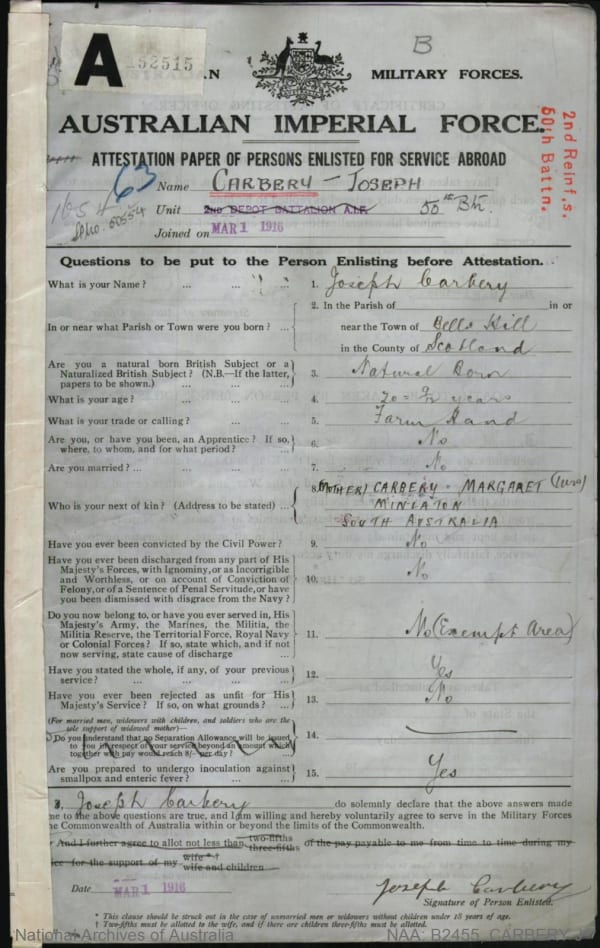 A
152515
B
MILITARY FORCES.
AUSTRALIAN IMPERIAL FORCE.
2nd Reinf,s.
50th Battn.
ATTESTATION PAPER OF PERSONS ENLISTED FOR SERVICE ABROAD
63
1654
Name CARBERY – JOSEPH
Unit 2ND DEPOT BATTALION A.I.F. 50th Btn.
Joined on MAR 1 1916
Questions to be put to the Person Enlisting before Attestation.
What is your Name? ... ... 1. Joseph Carbery
2. In the Parish of in or
In or near what Parish or Town were you born? ... near the Town of Bells Hill
in the County of Scotland
Are you a natural born British Subject or a
Naturalized British Subject? (N.B.—If the latter,
papers to be shown.) ... ... 3. Natural Born
What is your age? ... ... 4. years
What is your trade or calling? ... ... 5. Farm Hand
Are you, or have you been, an Apprentice? If so,
where, to whom, and for what period? ... 6. No
Are you married? ... ... ... 7. No
Who is your next of kin? (Address to be stated) ... 8. (MOTHER) CARBERY - MARGARET (Mrs)
MINLATON
SOUTH AUSTRALIA
Have you ever been convicted by the Civil Power? 9. No
Have you ever been discharged from any part of His
Majesty's Forces, with Ignominy, or as Incorrigible
and Worthless, or on account of Conviction of
Felony, or of a Sentence of Penal Servitude, or have
you been dismissed with disgrace from the Navy? 10. No
Do you now belong to, or have you ever served in, His
Majesty's Army, the Marines, the Militia, the
Militia Reserve, the Territorial Force, Royal Navy
or Colonial Forces? If so, state which, and if not
now serving, state cause of discharge 11. No (Exempt Area)
Have you stated the whole, if any, of your previous
service? ... ... ... 12. Yes
Have you ever been rejected as unfit for His
Majesty's Service? If so, on what grounds? ... 13. No
(For married men, widowers with children, and soldiers who are the
sole support of widowed mother)—
Do you understand that no Separation Allowance will be issued
to you in respect of your service beyond an amount which
together with pay would reach 8/- per day? ... 14.
Are you prepared to undergo inoculation against
smallpox and enteric fever? ... ... 15. Yes
Joseph Carbery do solemnly declare that the above answers made
me to the above questions are true, and I am willing and hereby voluntarily agree to serve in the Military Forces
he Commonwealth of Australia within or beyond the limits of the Commonwealth.
And I further agree to allot not less than two-fifths three-fifths of the pay payable to me from time to time during my
ice for the support of my wife*† wife and children
Date MAR 1 1916 Joseph Carbery
Signature of Person Enlisted.
* This clause should be struck out in the case of unmarried men or widowers without children under 18 years of age.
† Two-fifths must be allotted to the wife, and if there are children three-fifths must be allotted.
National Archives of Australia NAA: B2455, CARBERY J